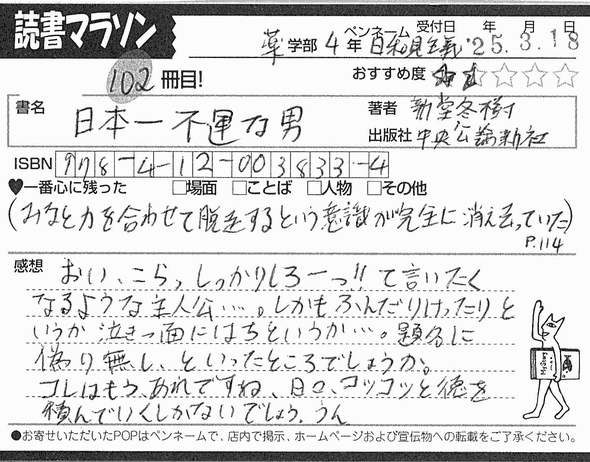 読書マラソン
ペンネーム 受付日 年 月 日
薬学部 4年 日和見主義 '25.3.18
102冊目!
おすすめ度 ★★☆☆☆
書名 日本一不運な男
著者 新堂冬樹
出版社 中央公論新社
ISBN 978-4-12-003833-4
♥一番心に残った □場面 □ことば □人物 □その他
(みなと力を合わせて脱走するという意識が完全に消え去っていた)
P.114
感想
おい、こらっ、しっかりしろーっ!!て言いたく
なるような主人公…。しかもふんだりけったりと
いうか泣きっ面にはちというか…。題名に
偽り無し、といったところでしょうか。
コレはもう、あれですね、日々、コツコツと徳を
積んでいくしかないでしょう。うん
●お寄せいただいたPOPはペンネームで、店内で掲示、ホームページおよび宣伝物への転載をご了承ください。